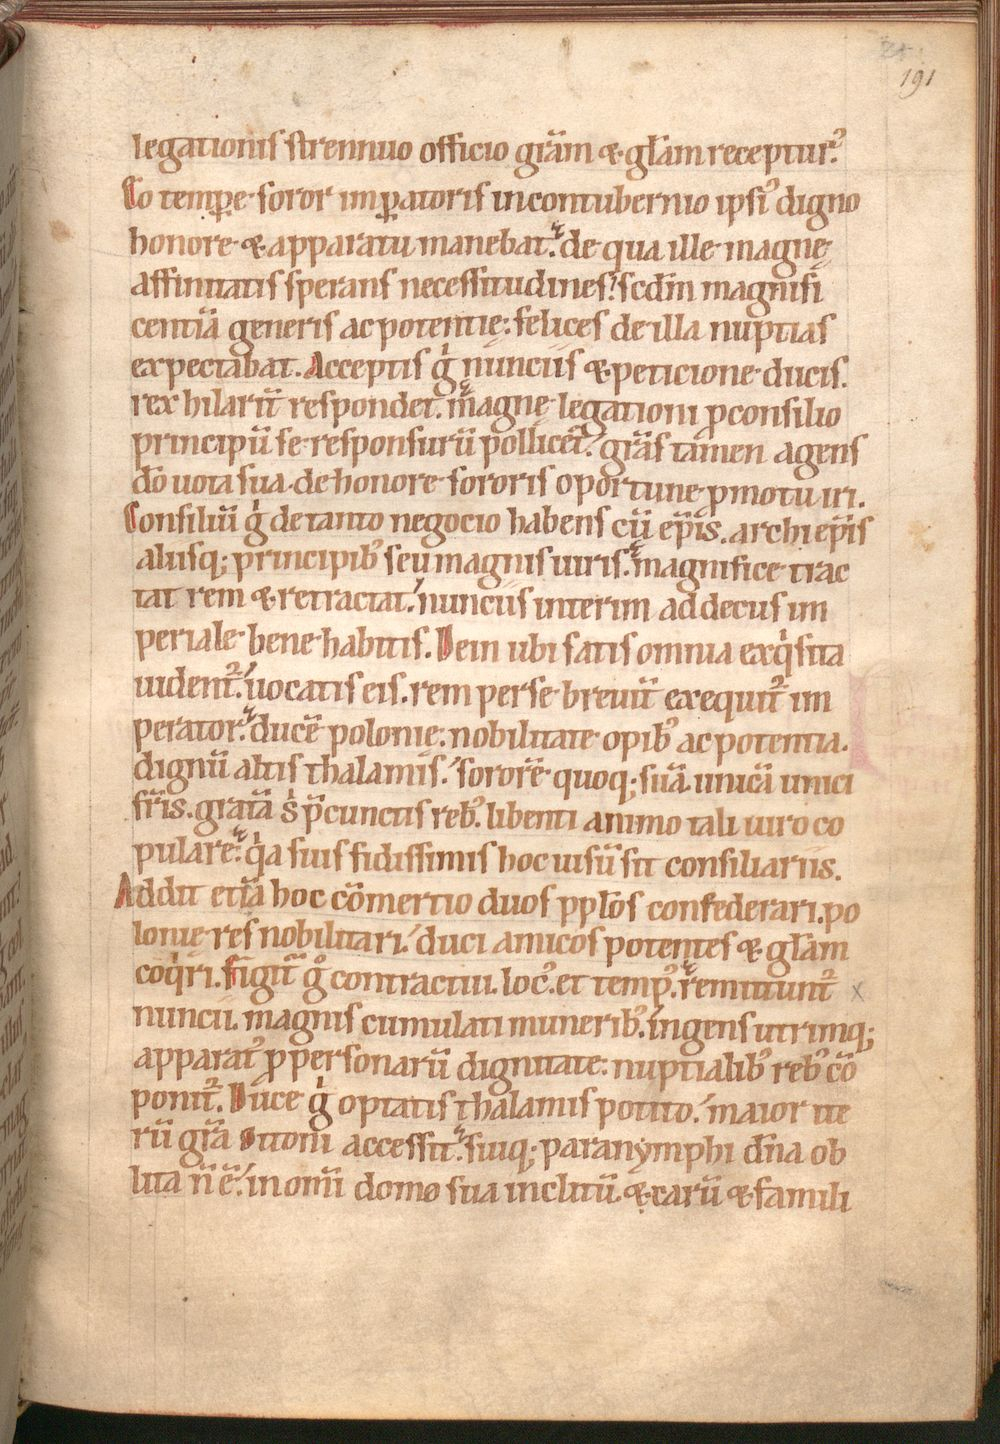 191
legationis strennuo officio gr̄am & gl̄am receptur᷒.
Eo temꝑe soror imꝑatoris in contubernio ipsi᷒ digno
honore & apparatu manebat. de qua ille magnę
affinitatis sperans necessitudines? scd̄m magnifi
centiā generis ac potentię: felices de illa nuptias
expectabat. Acceptis g̍ nunciis & peticione ducis.
rex hilarit̄ respondet. magnę legationi ꝓ consilio
principū se responsurū pollicet᷑. gr̄as tamen agens
dō uota sua de honore sororis oportune ꝓmotu iri.
Consiliū g̍ de tanto negocio habens cū ep̄is. archiep̄is
aliisq; principib᷒ seu magnis uiris. magnifice trac
tat rem & retractat. nunciis interim ad decus im
periale bene habitis. Dein ubi satis omnia exq̍sita
uident᷑. uocatis eis. rem per se breuit̄ exequit᷑ im
perator. ducē polonię: nobilitate opib᷒ ac potentia.
dignū altis thalamis. sororē quoq; suā. unicā unici
fr̄is. gratā s̍ p̄cunctis reb᷒. libenti animo tali uiro co
pulare. q̍a suis fidissimis hoc uisū sit consiliariis.
Addit etiā hoc cōmertio duos ppl̄os confederari. po
lonię res nobilitari. duci amicos potentes & gl̄am
coq̍ri. Figit᷑ gͦ contractui. loc᷒. et temp᷒. remittunt᷑
nuncii. magnis cumulati munerib᷒. ingens utrimq;
apparat᷒ ꝓ personarū dignitate: nuptialib᷒ reb᷒ cō
ponit᷑. Duce g̍ optatis thalamis potito. maior ite
rū gr̄a ottoni accessit. suiq; paranymphi dn̄a ob
lita n̄ ē. in omī domo sua inclitū & carū & famili